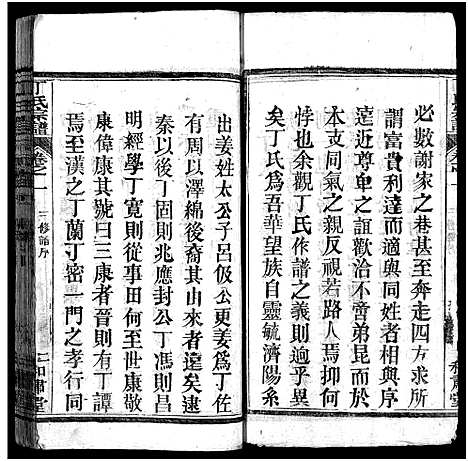 必數謝家之巷甚至奔走四方求所
謂富貴利達而適與同姓者相與序
遠近尊卑之誼歡洽不啻弟昆而於
本支同氣之親反視若路人焉抑何
悖也余觀丁氏作譜之義則逈乎異
矣丁氏為吾華望族自靈毓濟陽系
出姜姓太公子呂伋公更姜爲丁佐
有周以澤綿後裔其由來者遠矣逮
秦以後丁固則兆應封公丁馮則昌
明經學丁寬則從事田何至世康敬
康偉康其號曰三康者晉則有丁譚
焉至漢之丁蘭丁密一門之孝行同
丁氏宗譜
卷之一
三修譜序
二和肅堂